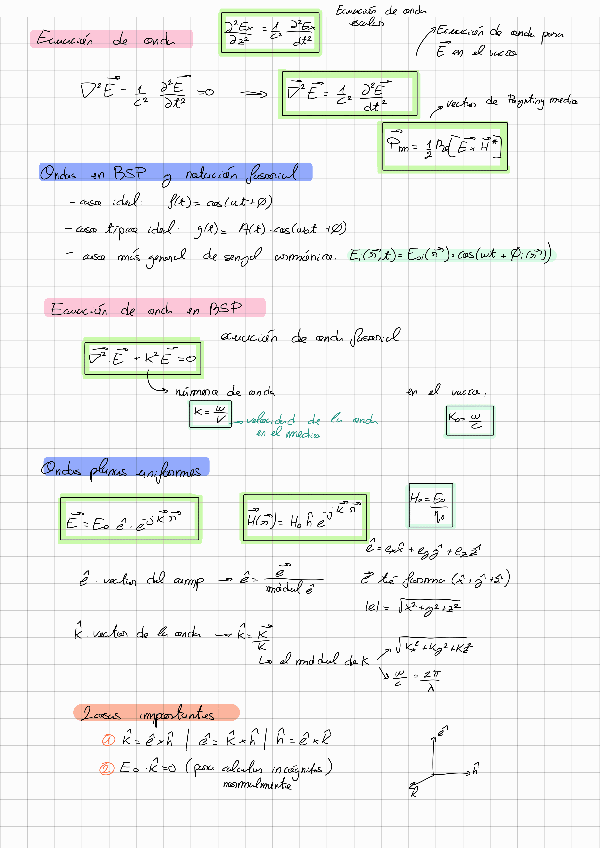 Ecuación de onda
∂²Ex/∂z² = 1/c² ∂²Ex/dt²
Ecuación de onda escalar
Ecuación de onda para E⃗ en el vacío
∇²E⃗ - 1/c² ∂²E⃗/∂t² = 0 ⟹ ∇⃗²E⃗ = 1/c² ∂²E⃗/dt²
vector de Poynting medio
P⃗m = 1/2 Re[E⃗ x H⃗*]
Ondas en BSP y notación fasorial
- caso ideal: f(t) = cos(ωt+φ)
- caso típico ideal: g(t) = A(t)·cos(ωot +φ)
- caso más general de senyal armónica: Ei(r⃗,t) = Eoi(r⃗)·cos(ωt + φi(r⃗))
Ecuación de onda en BSP
ecuación de onda fasorial
∇⃗²·E⃗ + k²E⃗ = 0
número de onda
en el vacío:
K = ω/v → velocidad de la onda en el medio
Ko = ω/c
Ondas planas uniformes
E⃗ = Eo ê · e^-jK⃗r⃗
H⃗(r⃗) = Ho ĥ e^-jK⃗r⃗
Ho = Eo/η0
ê = exx̂ + eyŷ + ezẑ
ê: vector del camp → ê = e⃗/mòdul ê
e⃗ té forma (x̂+ŷ+ẑ)
|e| = √x²+y²+z²
k̂: vector de la onda → k̂ = K⃗/K
↳ el mòdul de K
√Kx²+Ky²+Kz²
ω/c = 2π/λ
2 cosas importantes
① k̂ = ê x ĥ | ê = k̂ x ĥ | ĥ = ê x k̂
② Eo · k̂ = 0 (para calcular incógnitas) normalmente
ê
ĥ
k̂